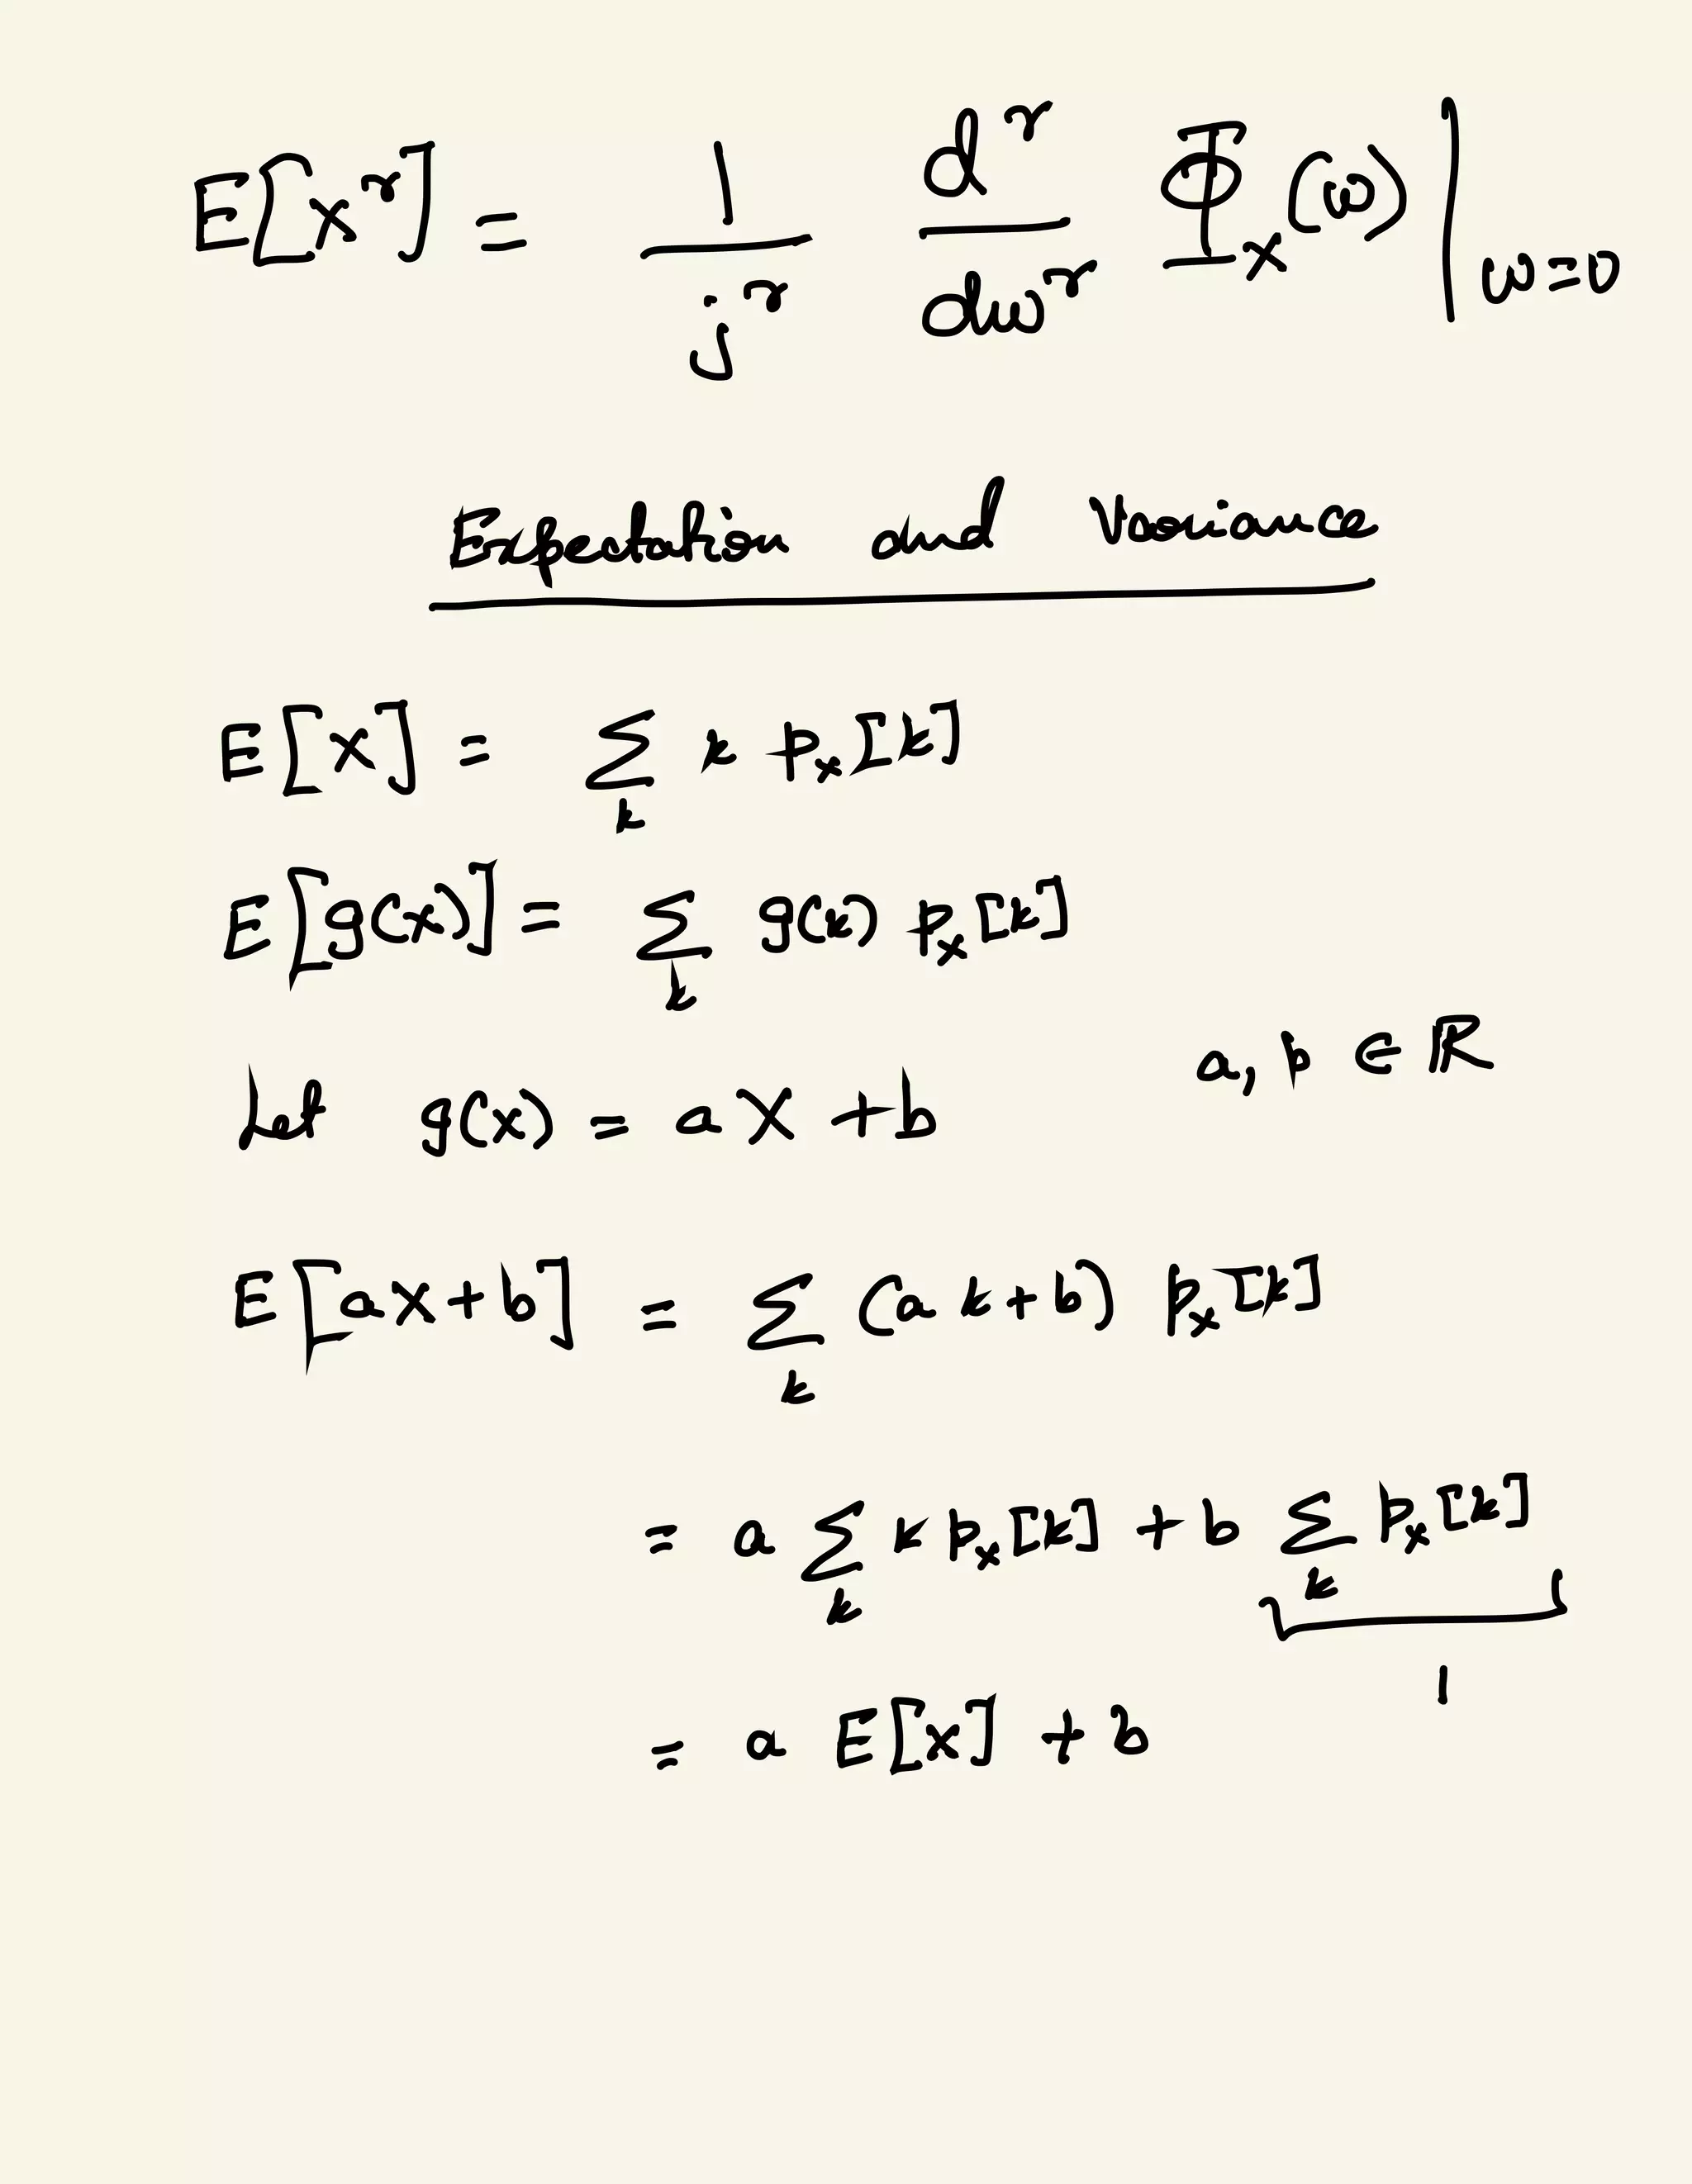 E[X^r] = 1/j^r d^r/dω^r Φ_X(ω) |_{ω=0}
Expectation and Variance
E[X] = Σ_k k p_X[k]
E[g(X)] = Σ_k g(k) p_X[k]
a, b ∈ ℝ
Let g(x) = aX + b
E[aX+b] = Σ_k (ak+b) p_X[k]
= a Σ_k k p_X[k] + b Σ_k p_X[k]
1
= a E[X] + b